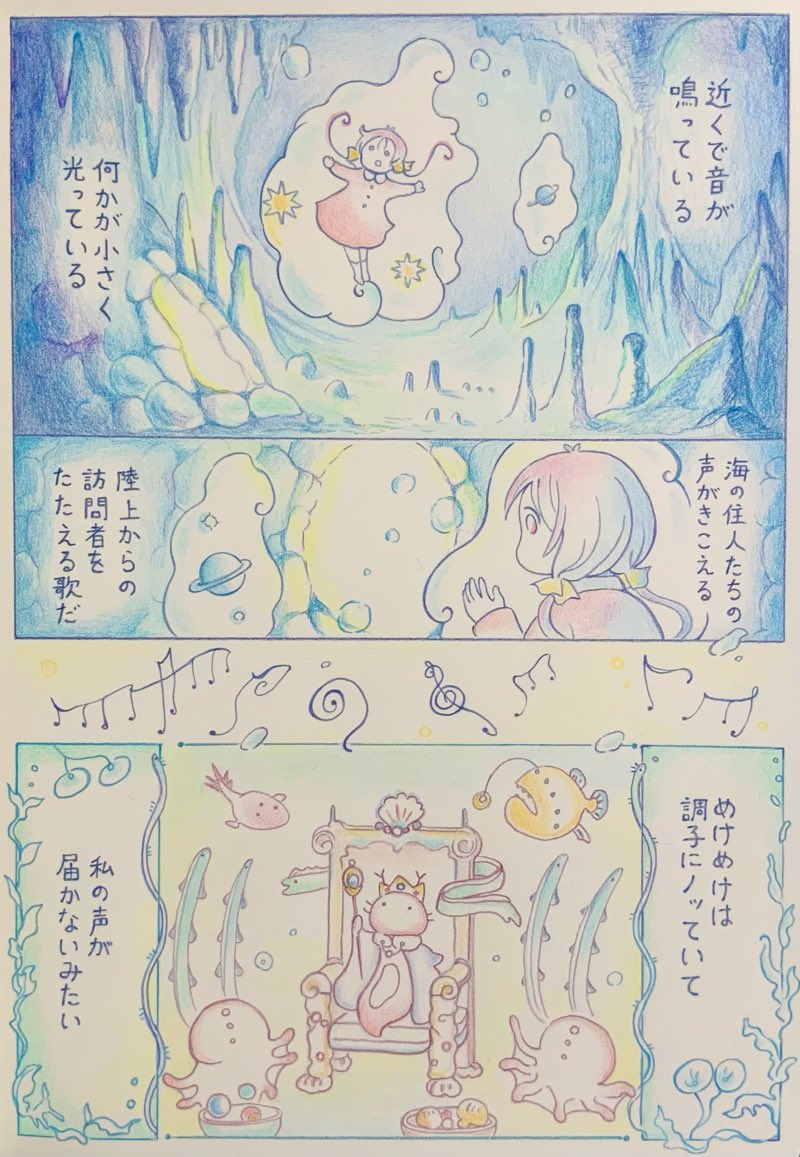 近くで音が
鳴っている
何かが小さく
光っている
海の住人たちの
声がきこえる
陸上からの
訪問者を
たたえる歌だ
めけめけは
調子にノッていて
私の声が
届かないみたい